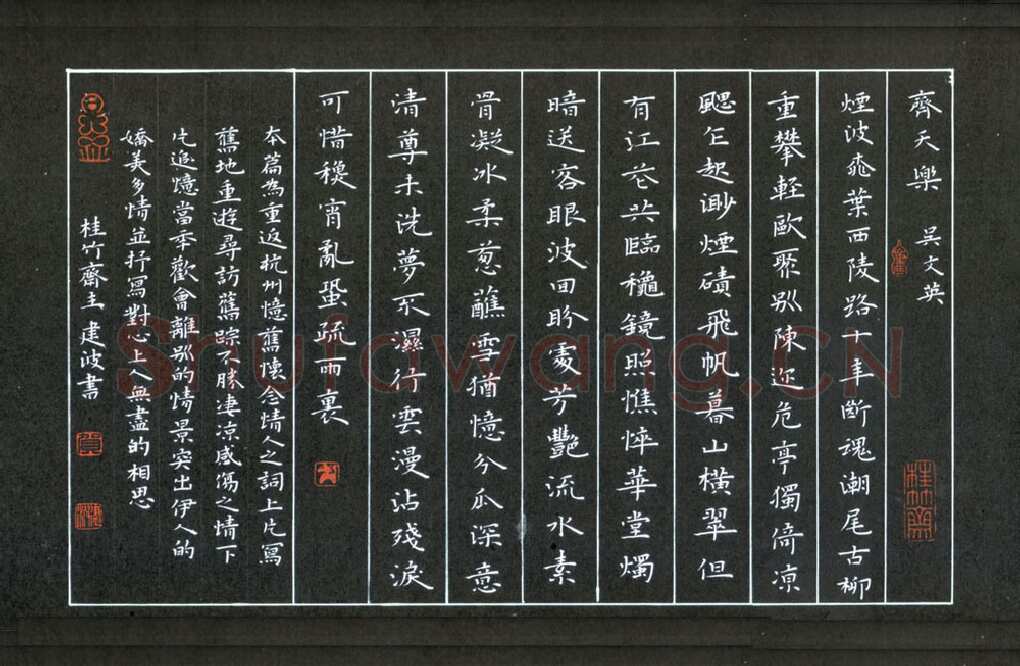 齊天樂 吳文英
煙波桃葉西陵路十年斷魂潮尾古柳
重攀輕歐聚別陳迹危亭獨倚凉
颸乍起渺煙磧飛帆暮山橫翠但
有江花共臨秋鏡照憔悴華堂燭
暗送客眼波回盼處芳艷流水素
骨凝冰柔葱蘸雪猶憶分瓜深意
清尊未洗夢不濕行雲漫沾殘淚
可惜秋宵亂蛩疏雨裏
本篇為重返杭州憶舊懷念情人之詞上片寫
舊地重遊尋訪舊踪不勝凄凉感傷之情下
片追憶當年歡會離別的情景突出伊人的
嬌美多情並抒寫對心上人無盡的相思
桂竹齋主建波書
桂竹齋
Shufawang.CN